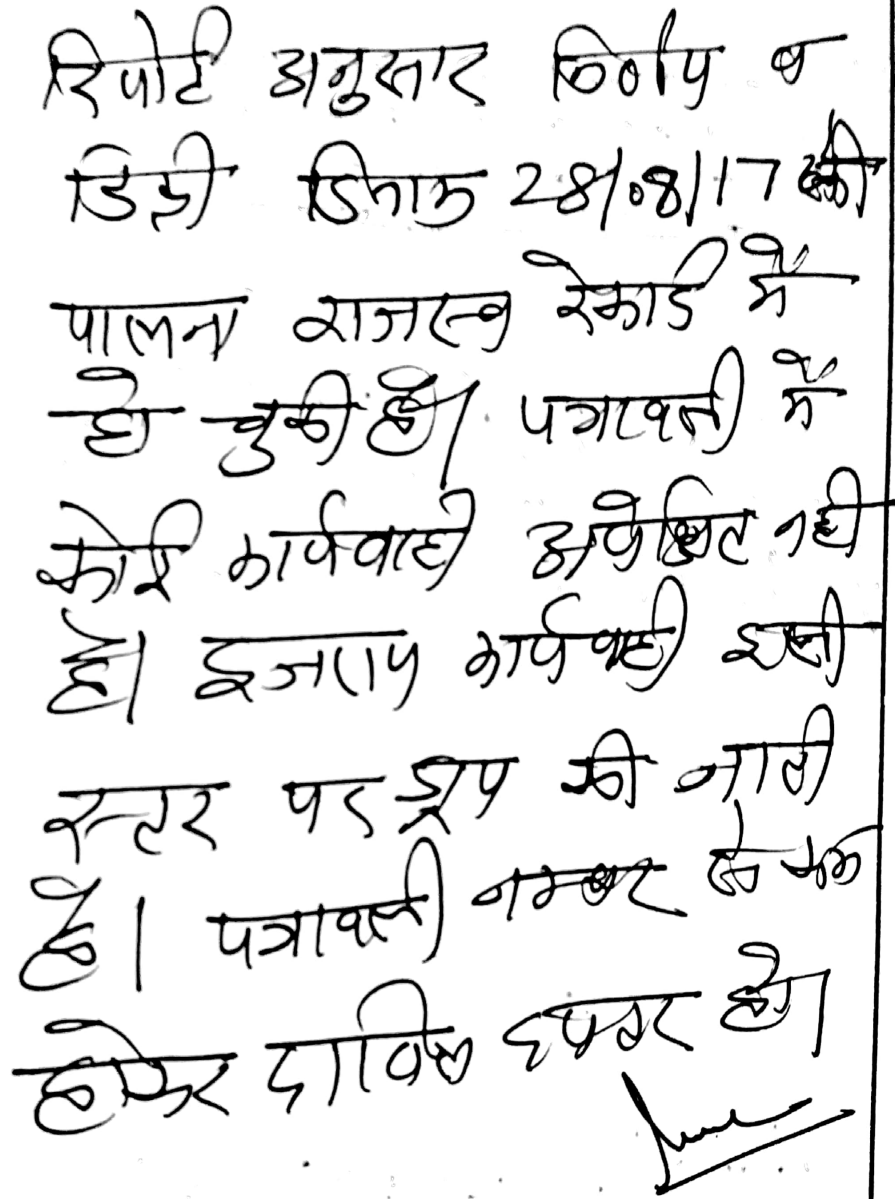 रिपोर्ट अनुसार निर्णय व
डिक्री दिनांक 28/08/17 की
पालना राजस्व रेकार्ड में
हो चुकी है। पत्रावली में
कोई कार्यवाही अपेक्षित नही
है। इजराय कार्यवाही इसी
स्तर पर ड्रॉप की जाती
है। पत्रावली नम्बर से कम
होकर दाखिल दफ्तर हो।